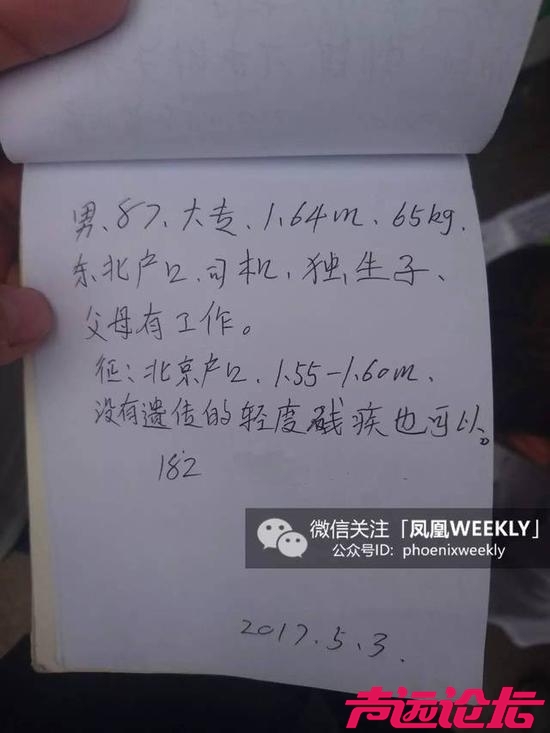 男、87、大专、1.64m、65kg、
东北户口、司机、独生子、
父母有工作。
征：北京户口、1.55-1.60m、
没有遗传的轻度残疾也可以。
182
微信关注「凤凰WEEKLY」
公众号ID: phoenixweekly
2017.5.3.
声远论坛